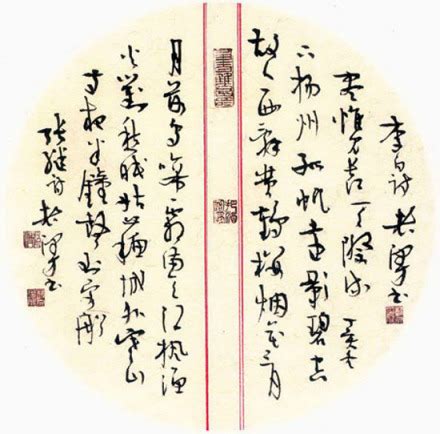 故人西辞黄鹤楼烟花三月
下扬州孤帆远影碧空
尽惟见长江天际流
李白诗 书
月落乌啼霜满天江枫渔
火对愁眠姑苏城外寒山
寺夜半钟声到客船
张继诗 书